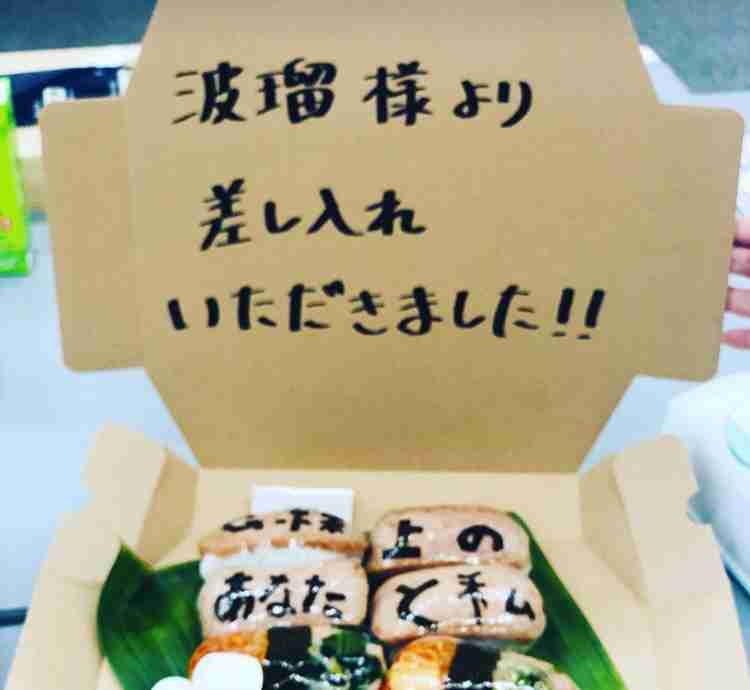 波瑠様より
差し入れ
いただきました!!
上の
あなた
と私